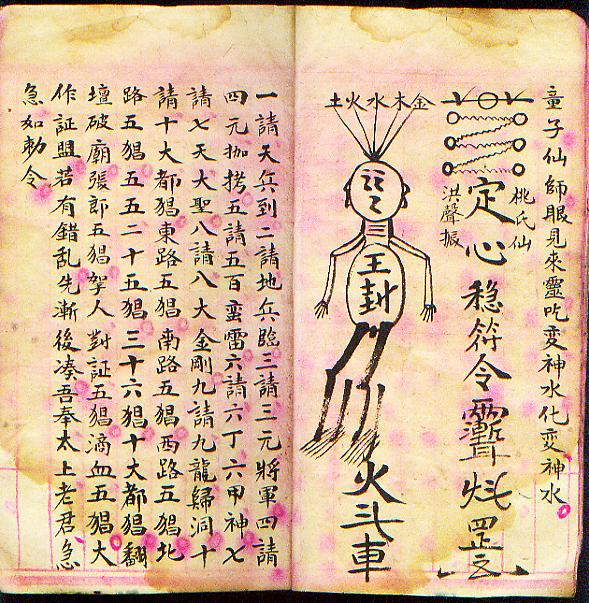 童子仙師眼見來靈吃变神水化变神水
桃氏仙
定心穩符令
罡
洪聲振
金木水火土
王封
火
車
一請天兵到二請地兵臨三請三元將軍四請
四元枷拷五請五百蛮雷六請六丁六甲神七
請七天大聖八請八大金剛九請九龍歸洞十
請十大都猖東路五猖南路五猖西路五猖北
路五猖五五二十五猖三十六猖十大都猖翻
壇破廟張郎五猖拏人對証五猖滴血五猖大
作証盟若有錯乱先漸後凑吾奉太上老君急
急如勅令